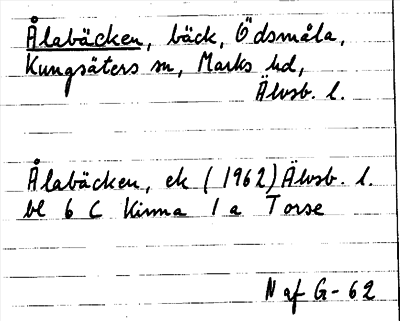 Ålabäcken, bäck, Ödsmåla,
Kungsäters sn, Marks hd,
Älvsb. l.
Ålabäcken, ek (1962) Älvsb. l.
bl 6 C Kinna 1 a Torse
N af G-62